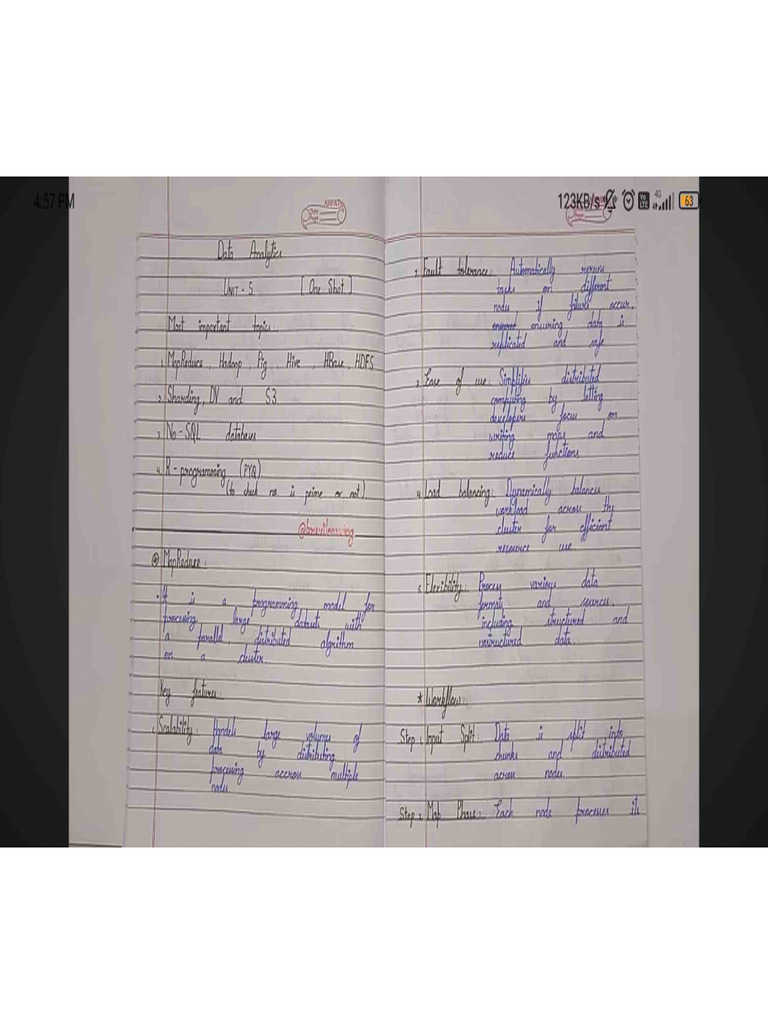 4:57 PM
123KB/s
4G
63
Data Analytics
UNIT - 5 [One Shot]
Most important topics:
1. MapReduce, Hadoop, Pig, Hive, HBase, HDFS
2. Sharding, DV and S3
3. No-SQL databases
4. R-programming (PYQ)
(to check no. is prime or not).
MapReduce:
• It is a programming model for
processing large datasets with
a parallel, distributed algorithm
on a cluster
Key features:
1. Scalability: Handels large volumes of
data by distributing
processing accross multiple
nodes
2. Fault tolerance: Automatically reruns
tasks on different
nodes if failure occur,
ensuring data is
replicated and safe
3. Ease of use: Simplifies distributed
computing by letting
developers focus on
writing maps and
reduce functions
4. Load balancing: Dynamically balances
workload across the
cluster for efficient
resource use
5. Flexibility: Process various data
formats and sources,
including structured and
unstructured data.
* Workflow:
Step 1. Input Split: Data is split into
chunks and distributed
across nodes.
Step 2. Map Phase: Each node processes its